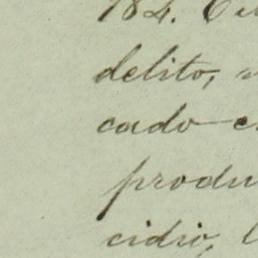 184.
delito,
cado
produ
cidio,